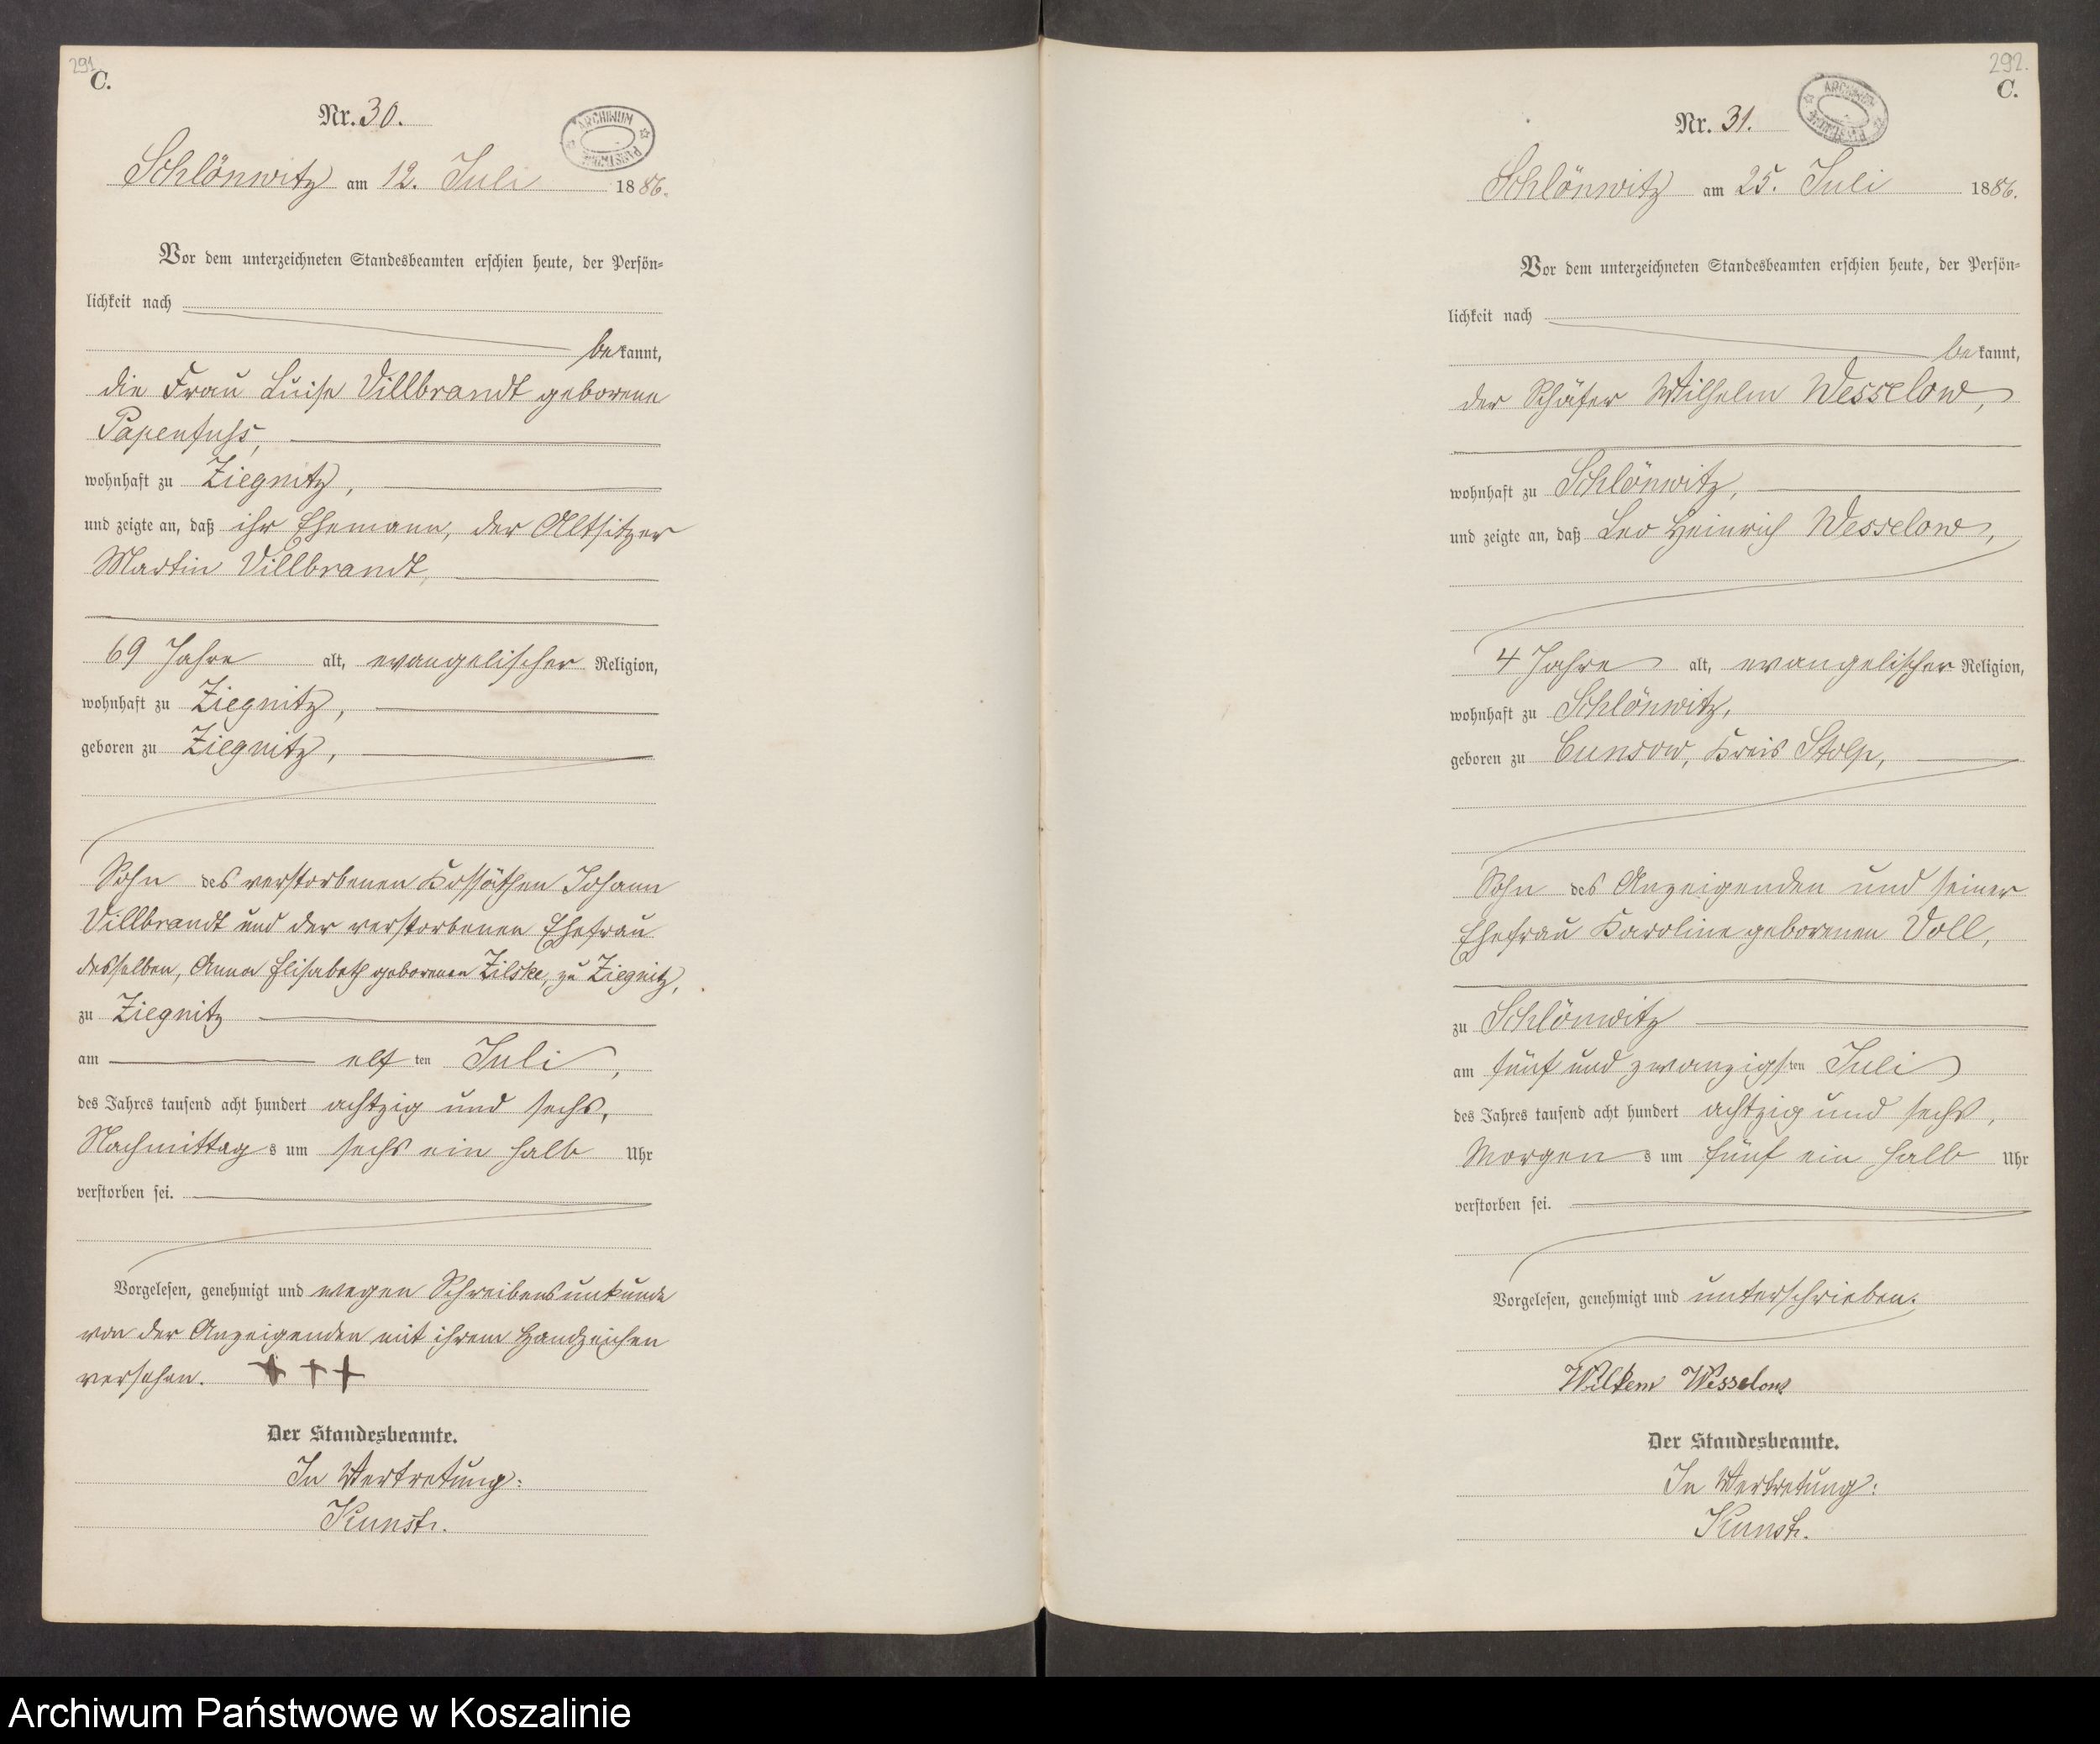 291
C.
Nr. 30.
ARCHIWUM
PAŃSTWOWE
Schlönwitz am 12. Juli 1886.
Vor dem unterzeichneten Standesbeamten erschien heute, der Persön-
lichkeit nach
bekannt,
die Frau Luise Villbrandt geborene
Papenfuss,
wohnhaft zu Ziegnitz,
und zeigte an, daß ihr Ehemann, der Altsitzer
Martin Villbrandt,
69 Jahre alt, evangelischer Religion,
wohnhaft zu Ziegnitz,
geboren zu Ziegnitz,
Sohn des verstorbenen Kossäthen Johann
Villbrandt und der verstorbenen Ehefrau
desselben, Anna Elisabeth geborenen Zilske, zu Ziegnitz,
zu Ziegnitz
am elften Juli,
des Jahres tausend acht hundert achtzig und sechs,
Nachmittags um sechs ein halb Uhr
verstorben sei.
Vorgelesen, genehmigt und wegen Schreibensunkunde
von der Anzeigenden mit ihrem Handzeichen
versehen. + + +
Der Standesbeamte.
In Vertretung:
292.
C.
Nr. 31.
ARCHIWUM
PAŃSTWOWE
Schlönwitz am 25. Juli 1886.
Vor dem unterzeichneten Standesbeamten erschien heute, der Persön-
lichkeit nach
bekannt,
der Schäfer Wilhelm Wesselow,
wohnhaft zu Schlönwitz,
und zeigte an, daß Leo Heinrich Wesselow,
4 Jahre alt, evangelischer Religion,
wohnhaft zu Schlönwitz,
geboren zu Cunsow, Kreis Stolp,
Sohn des Anzeigenden und seiner
Ehefrau Karoline geborenen Voll,
zu Schlönwitz
am fünf und zwanzigsten Juli
des Jahres tausend acht hundert achtzig und sechs,
Morgens um fünf ein halb Uhr
verstorben sei.
Vorgelesen, genehmigt und unterschrieben.
Wesselow
Der Standesbeamte.
In Vertretung:
Archiwum Państwowe w Koszalinie